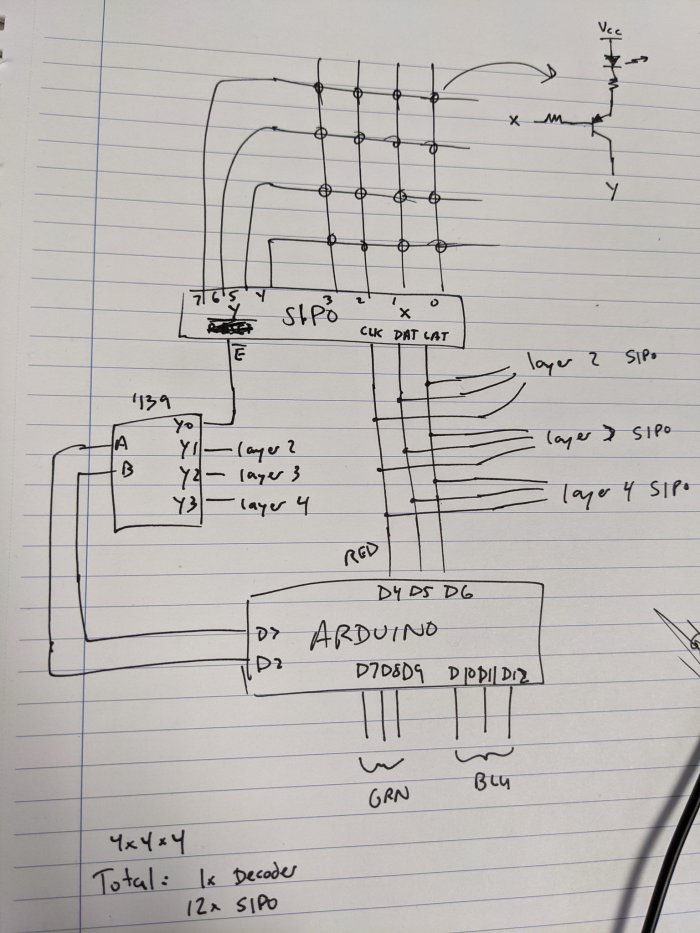 Vcc
X
Y
7 6 5 4 3 2 1 0
Y SIPO X
CLK DAT LAT
E
layer 2 SIPO
'139
A Y0
B Y1 layer 2
Y2 layer 3
Y3 layer 4
layer 3 SIPO
layer 4 SIPO
RED
D4 D5 D6
D3 ARDUINO
D2
D7 D8 D9 D10 D11 D12
GRN BLU
4x4x4
Total: 1x Decoder
12x SIPO